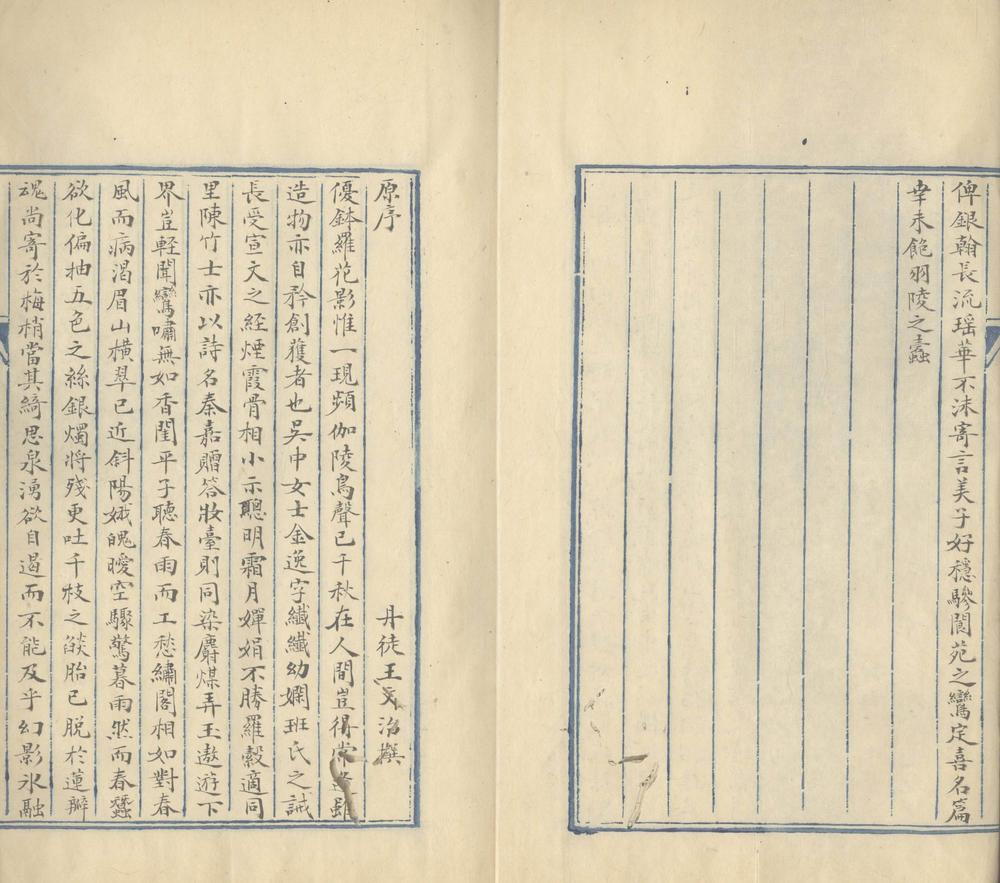 俾銀翰長流瑶華不沬寄言美子好穩驂閬苑之鸞定喜名篇
幸未飽羽陵之蠹
原序
丹徒王文治撰
優鉢羅花影惟一現頻伽陵鳥聲已千秋在人間豈得常逢雖
造物亦自矜創獲者也吳中女士金逸字纖纖幼嫻班氏之誡
長受宣文之經煙霞骨相小示聰明霜月嬋娟不勝羅縠適同
里陳竹士亦以詩名秦嘉贈答妝臺則同染麝煤弄玉遨遊下
界豈輕聞鸞嘯無如香閨平子聽春雨而工愁繡閣相如對春
風而病渴眉山橫翠已近斜陽娥魄曖空驟驚暮雨然而春蠶
欲化偏抽五色之絲銀燭將殘更吐千枝之燄胎已脫於蓮瓣
魂尚寄於梅梢當其綺思泉湧欲自遏而不能及乎幻影冰融